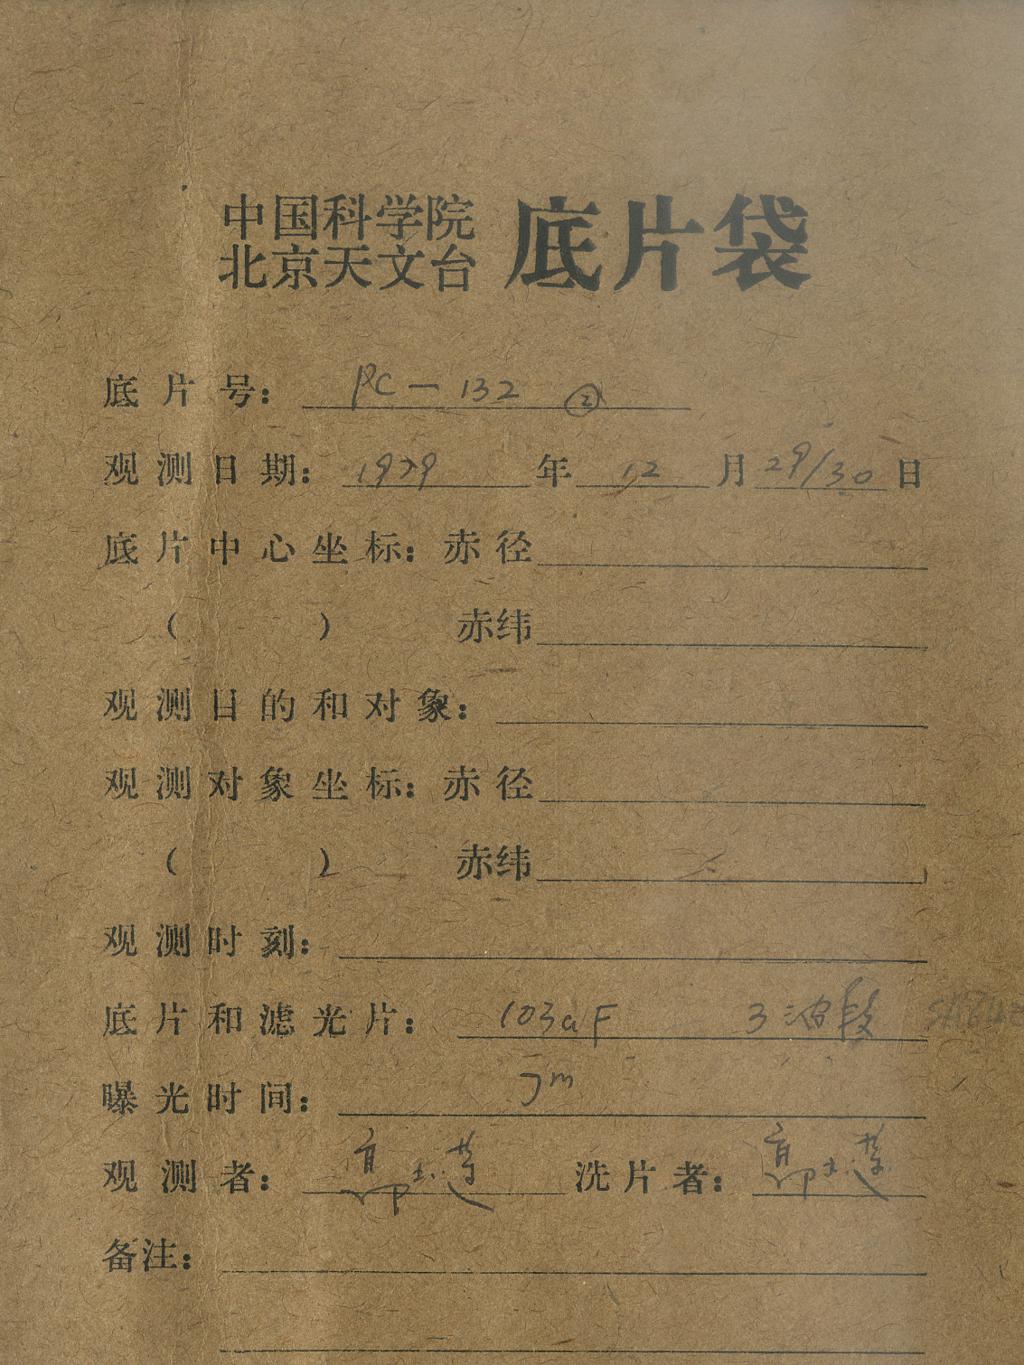 中国科学院
北京天文台 底片袋
底片号： PC—132 ②
观测日期： 1979 年 12 月 29/30 日
底片中心坐标：赤径
（ ） 赤纬
观测目的和对象：
观测对象坐标：赤径
（ ） 赤纬
观测时刻：
底片和滤光片： 103aF 3波段
曝光时间： m
观测者： 洗片者：
备注：